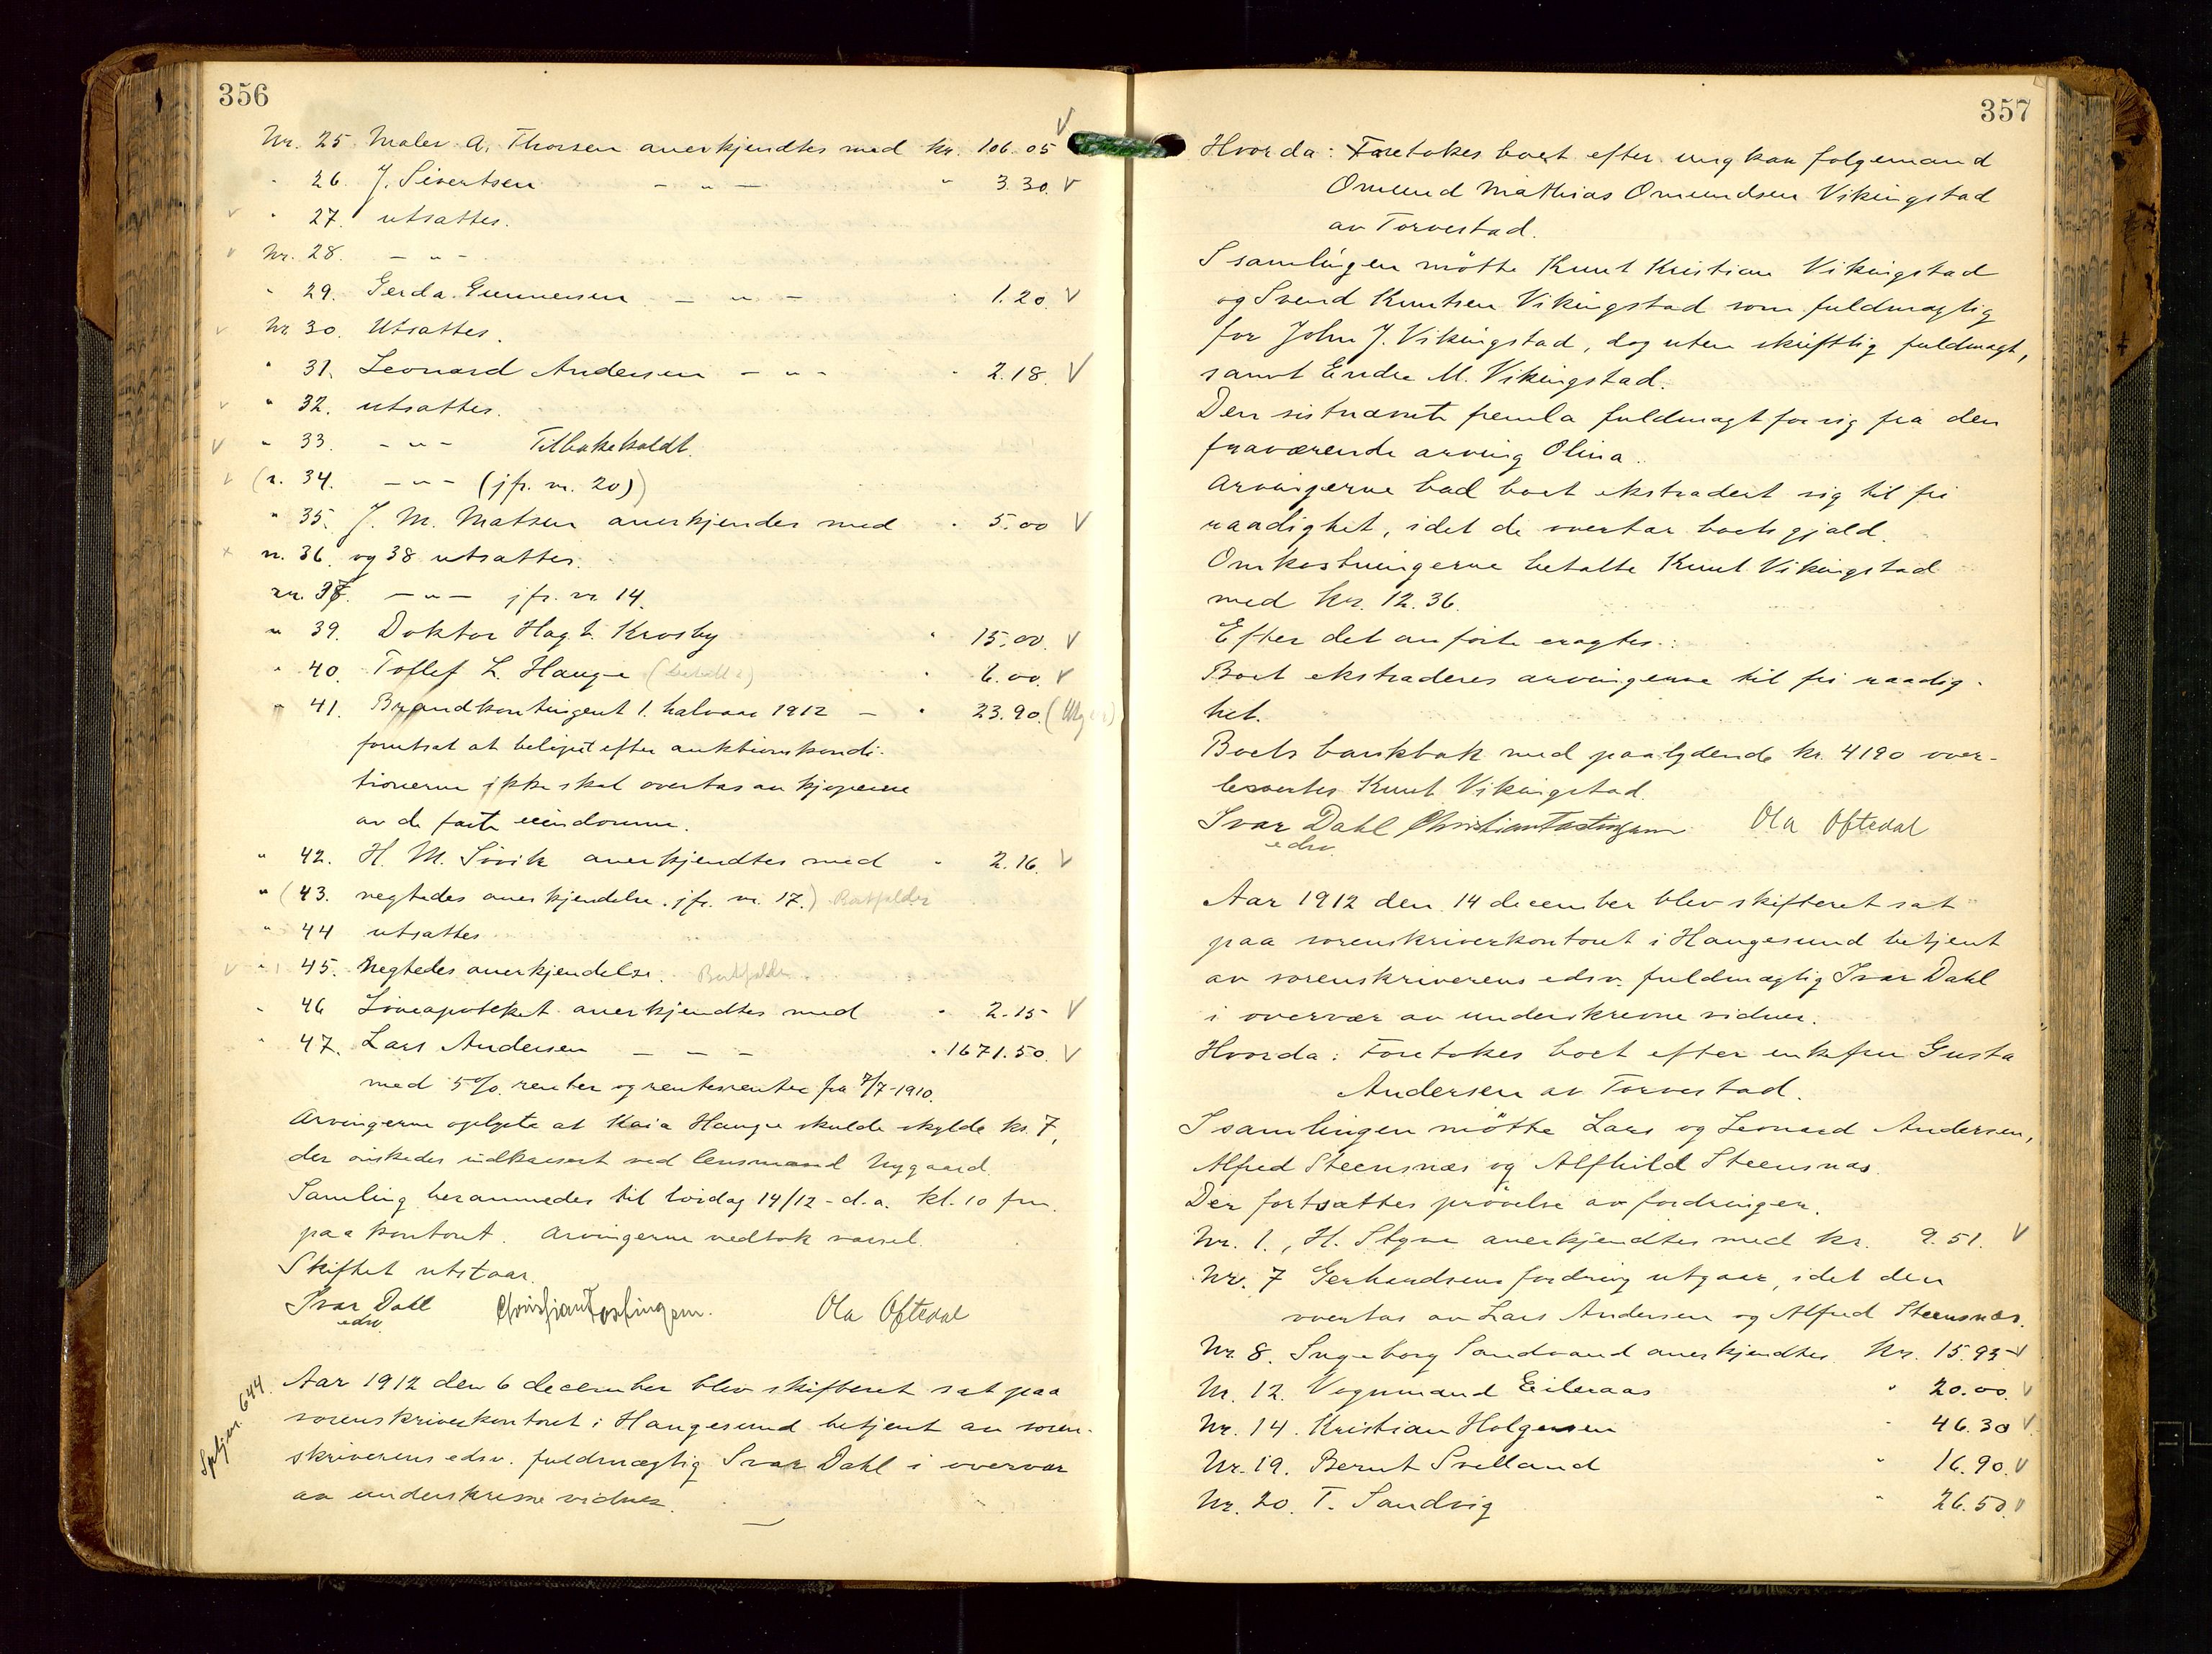 356
Nr. 25 Maler A. Thorsen anerkjendtes med kr. 106.05 V
" 26. J. Sivertsen - " - " 3.30. V
V " 27. utsættes.
V Nr. 28. - " -
" 29. Gerda Gunnersen - " - " 1.20. V
V Nr 30. Utsættes.
" 31. Leonard Andersen - " - " 2.18. V
V " 32. utsættes.
V " 33. - " - Tilbakekaldt.
V (n. 34. - " - (jfr. nr. 20))
" 35. J. M. Matsen anerkjendes med " 5.00 V
x n. 36. og 38 utsættes.
nr. 37. - " - jfr. nr. 14.
" 39. Doktor Hagb. Krosby " 15.00. V
" 40. Tollef L. Hauge (betalt) " 6.00. V
" 41. Brandkontingent 1. halvaar 1912 - " 23.90.
forutsat at beløpet efter auktionskondi-
tionerne ikke skal overtas av kjøperne
av de faste eiendomme.
" 42. H. M. Sövik anerkjendtes med " 2.16. V
" (43. negtedes anerkjendelse. jfr. nr. 17.) Bortfalder
" 44 utsættes
V " 45. Negtedes anerkjendelse. Bortfalder
" 46 Löveapoteket anerkjendtes med " 2.15 V
" 47. Lars Andersen - - - " 1671.50. V
med 5% renter og rentesrenter fra 7/7-1910.
Arvingerne oplyste at Kaia Hauge skulde skylde kr. 7,
der önskedes indkassert ved lensmand Nygaard.
Samling berammedes til lördag 14/12 - d.a. kl. 10 fm.
paa kontoret. Arvingerne vedtok varsel.
Skiftet utstaar.
Ivar Dahl Christian Tostingsen. Ola Oftedal
edsv.
Spbj. nr. 644.
Aar 1912 den 6 december blev skifteret sat paa
sorenskriverkontoret i Haugesund betjent av soren-
skriverens edsv. fuldmægtig Ivar Dahl i overvær
av underskrevne vidner.
357
Hvorda: Foretokes boet efter ungkar følgemand
Omund Mathias Omundsen Vikingstad
av Torvestad.
I samlingen mötte Knut Kristian Vikingstad
og Svend Knutsen Vikingstad som fuldmægtig
for John J. Vikingstad, dog uten skriftlig fuldmagt,
samt Endre M. Vikingstad.
Den sistnævnte fremla fuldmagt for sig fra den
fraværende arving Olina.
Arvingerne bad boet ekstradert sig til fri
raadighet, idet de overtar boets gjæld.
Omkostningerne betalte Knut Vikingstad
med kr. 12.36.
Efter det anförte eragtes:
Boet ekstraderes arvingerne til fri raadig-
het.
Boets bankbok med paalydende kr. 4190 over-
levertes Knut Vikingstad.
Ivar Dahl Christian Tostingsen Ola Oftedal
edsv.
Aar 1912 den 14 december blev skifteret sat
paa sorenskriverkontoret i Haugesund betjent
av sorenskriverens edsv. fuldmægtig Ivar Dahl
i overvær av underskrevne vidner.
Hvorda: Foretokes boet efter enkefru Gusta
Andersen av Torvestad.
I samlingen mötte Lars og Leonard Andersen,
Alfred Steensnæs og Alfhild Steensnæs.
Der fortsattes prövelse av fordringer.
Nr. 1., H. Styve anerkjendtes med kr. 9.51. V
Nr. 7 Gerhardsens fordring utgaar, idet den
overtas av Lars Andersen og Alfred Steensnæs.
Nr. 8. Ingeborg Sandvand anerkjendtes Kr. 15.93 V
Nr. 12. Vognmand Eileraas " 20.00. V
Nr. 14. Kristian Holgersen " 46.30 V
Nr. 19. Bernt Svelland " 16.90. V
Nr. 20. T. Sandvig " 26.50. V